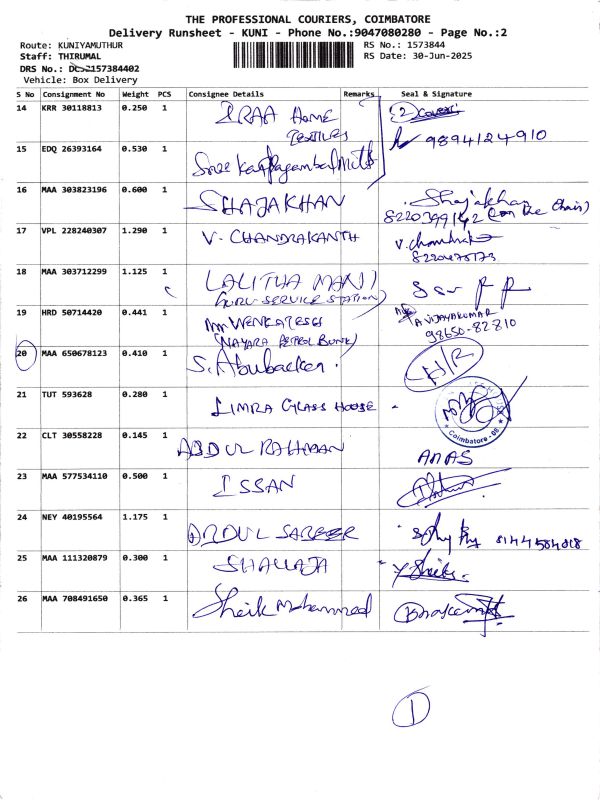 THE PROFESSIONAL COURIERS, COIMBATORE
Delivery Runsheet - KUNI - Phone No.:9047080280 - Page No.:2
Route: KUNIYAMUTHUR
RS No.: 1573844
Staff: THIRUMAL
RS Date: 30-Jun-2025
DRS No.:
Vehicle: Box Delivery
S No Consignment No Weight PCS Consignee Details Remarks Seal & Signature
14 KRR 30118813 0.250 1 IRAA HOME
TEXTILES
9894124910
15 EDQ 26393164 0.530 1 Sree
16 MAA 303823196 0.600 1 SHAJAKHAN Shajakhan
17 VPL 228240307 1.290 1 V. CHANDRAKANTH
18 MAA 303712299 1.125 1 LALITHA MANI
(GURU SERVICE STATION)
19 HRD 50714420 0.441 1 VENKATESH
(NAYARA PETROL BUNK)
A VIJAYAKUMAR
98650-82810
20 MAA 650678123 0.410 1 S. Abubacker.
21 TUT 593628 0.280 1 LIMRA GLASS HOUSE -
Coimbatore - 08
22 CLT 30558228 0.145 1 ABDUL RAHMAN ANAS
23 MAA 577534110 0.500 1 ISSAN
24 NEY 40195564 1.175 1 ABDUL
25 MAA 111320879 0.300 1 SHAILAJA
26 MAA 708491650 0.365 1 Sheik Mohammed
1